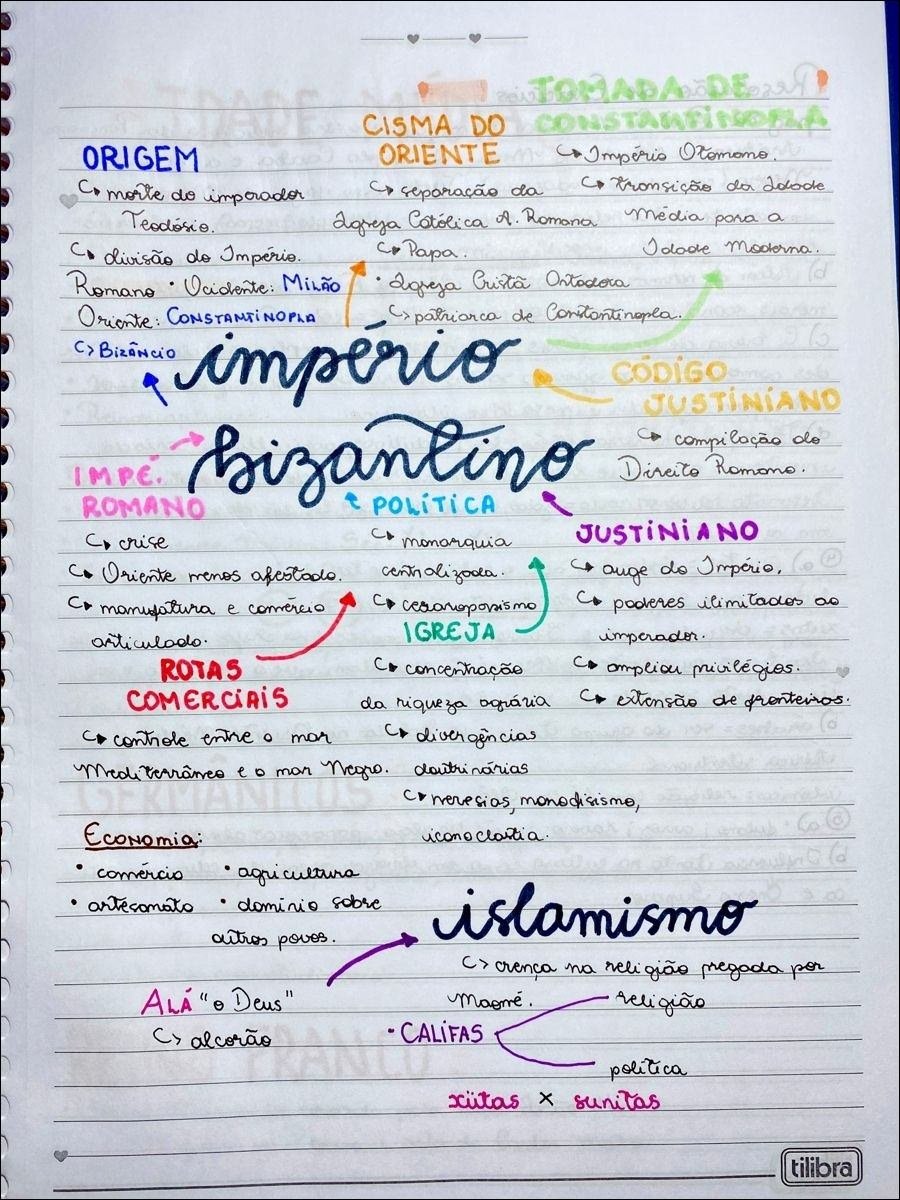 TOMADA DE
CONSTANTINOPLA
↳ Império Otomano.
↳ transição da Idade
Média para a
Idade Moderna.
CISMA DO
ORIENTE
↳ separação da
Igreja Católica A. Romana
↳ Papa.
• Igreja Cristã Ortodoxa
↳ patriarca de Constantinopla.
ORIGEM
↳ morte do imperador
Teodósio.
↳ divisão do Império.
Romano • Ocidente: MILÃO
Oriente: CONSTANTINOPLA
↳ BIZÂNCIO
império
bizantino
CÓDIGO
JUSTINIANO
↳ compilação do
Direito Romano.
IMPÉ.
ROMANO
↳ crise
↳ Oriente menos afestado.
↳ manufatura e comércio
articulado.
POLÍTICA
↳ monarquia
centralizada.
↳ cesaropapismo
JUSTINIANO
↳ auge do Império.
↳ poderes ilimitados ao
imperador.
↳ ampliou privilégios.
↳ extensão de fronteiras.
IGREJA
↳ concentração
da riqueza agrária
↳ divergências
doutrinárias
↳ heresias, monofisismo,
iconoclastia.
ROTAS
COMERCIAIS
↳ controle entre o mar
Mediterrâneo e o mar Negro.
ECONOMIA:
• comércio • agricultura
• artesanato • domínio sobre
outros povos.
islamismo
↳ crença na religião pregada por
Maomé.
ALÁ "o Deus"
↳ alcorão
• CALIFAS
religião
política
xiitas × sunitas
tilibra